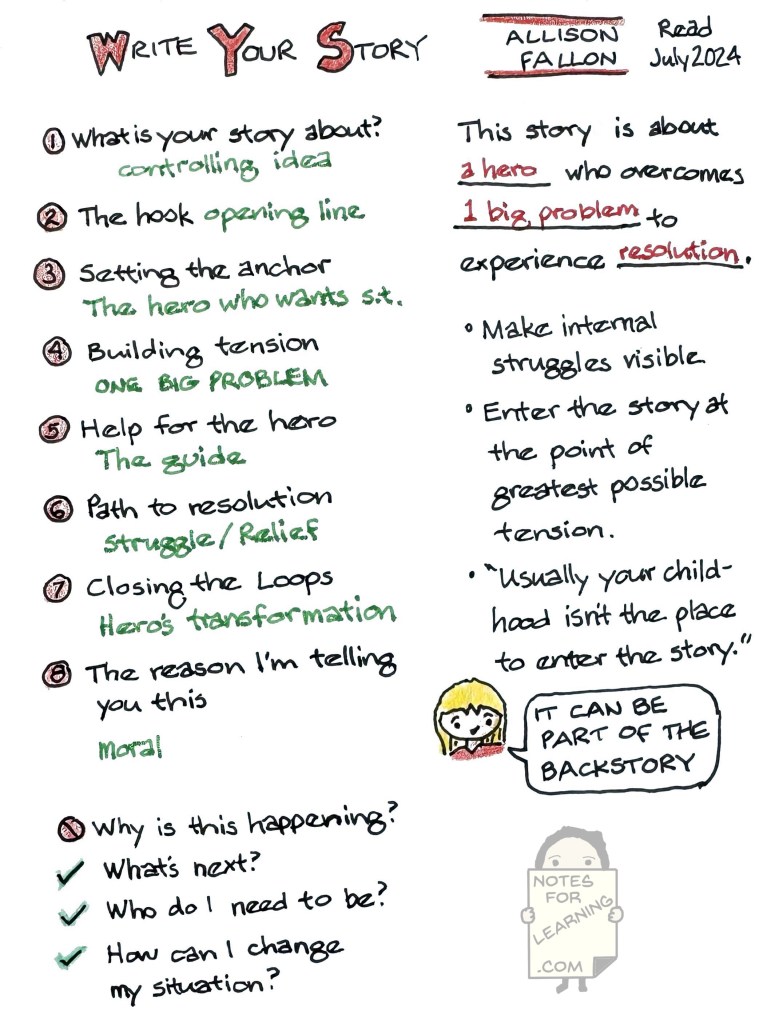 WRITE YOUR STORY
ALLISON
FALLON
Read
July 2024
1 What is your story about?
controlling idea
2 The hook opening line
3 Setting the anchor
The hero who wants s.t.
4 Building tension
ONE BIG PROBLEM
5 Help for the hero
The guide
6 Path to resolution
struggle / Relief
7 Closing the Loops
Hero's transformation
8 The reason I'm telling
you this
moral
Why is this happening?
✓ What's next?
✓ Who do I need to be?
✓ How can I change
my situation?
This story is about
a hero who overcomes
1 big problem to
experience resolution.
• Make internal
struggles visible
• Enter the story at
the point of
greatest possible
tension.
• "Usually your child-
hood isn't the place
to enter the story."
IT CAN BE
PART OF THE
BACKSTORY
NOTES
FOR
LEARNING
.COM